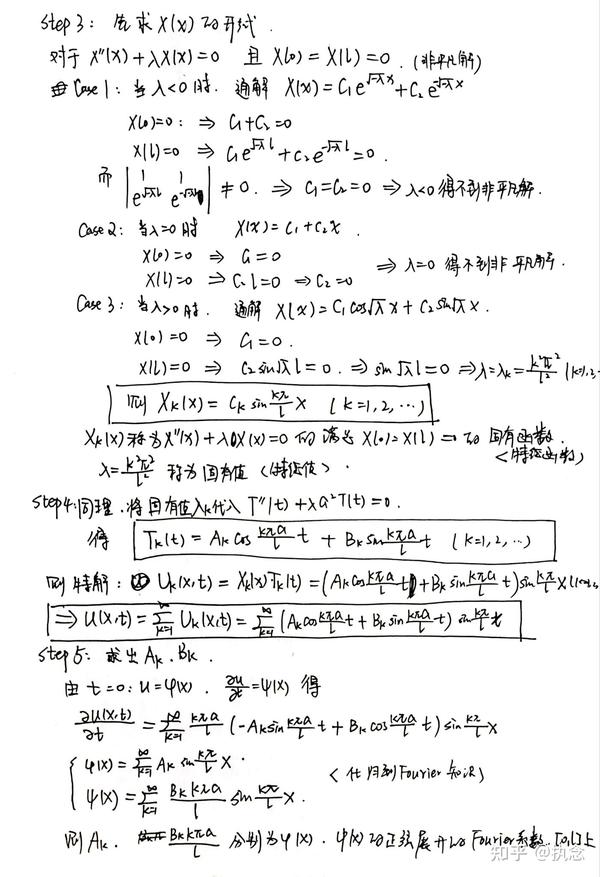 Step 3: 先求 X(x) 的形式.
对于 X''(x) + λX(x) = 0 且 X(0) = X(l) = 0. (非平凡解)
Case 1: 当 λ<0 时. 通解 X(x) = C₁e^{√-λ x} + C₂e^{-√-λ x}
X(0)=0: ⇒ C₁+C₂=0
X(l)=0 ⇒ C₁e^{√-λ l} + C₂e^{-√-λ l} = 0.
而 |1 1; e^{√-λ l} e^{-√-λ l}| ≠ 0. ⇒ C₁=C₂=0 ⇒ λ<0 得不到非平凡解.
Case 2: 当 λ=0 时 X(x) = C₁+C₂x.
X(0)=0 ⇒ C₁=0
X(l)=0 ⇒ C₂l=0 ⇒ C₂=0 ⇒ λ=0 得不到非平凡解.
Case 3: 当 λ>0 时. 通解 X(x) = C₁cos√λ x + C₂sin√λ x.
X(0)=0 ⇒ C₁=0.
X(l)=0 ⇒ C₂sin√λ l = 0. ⇒ sin√λ l = 0 ⇒ λ=λ_k= k²π²/l² (k=1,2,
则 X_k(x) = C_k sin kπ/l x (k=1,2,…)
X_k(x) 称为 X''(x)+λX(x)=0 的满足 X(0)=X(l)=0 的固有函数.
<特征函数>
λ= k²π²/l² 称为固有值 <特征值>.
Step 4: 同理. 将固有值 λ_k 代入 T''(t)+λa²T(t)=0.
得 T_k(t) = A_k cos kπa/l t + B_k sin kπa/l t (k=1,2,…)
则特解: U_k(x,t) = X_k(x)T_k(t) = (A_k cos kπa/l t + B_k sin kπa/l t) sin kπ/l x (k=1,2,
⇒ U(x,t) = ∑_{k=1}^{∞} U_k(x,t) = ∑_{k=1}^{∞} (A_k cos kπa/l t + B_k sin kπa/l t) sin kπ/l x
Step 5: 求出 A_k. B_k.
由 t=0: u=φ(x). ∂u/∂t=ψ(x) 得
∂u(x,t)/∂t = ∑_{k=1}^{∞} kπa/l (-A_k sin kπa/l t + B_k cos kπa/l t) sin kπ/l x
φ(x) = ∑_{k=1}^{∞} A_k sin kπ/l x.
ψ(x) = ∑_{k=1}^{∞} B_k kπa/l sin kπ/l x. <化归到Fourier 知识>
则 A_k. B_k kπa/l 分别为 φ(x). ψ(x) 的正弦展开的 Fourier系数. [0,l]上
知乎 @执念